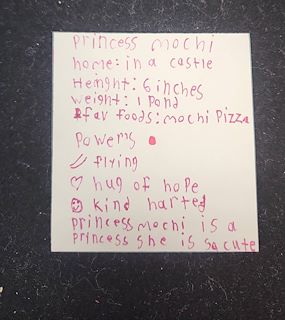 princess mochi
home: in a castle
Heinght: 6 inches
weight: 1 Pond
fav foods: mochi Pizza
Powers
flying
hug of hope
kind harted
princess mochi is a
princess she is so cute